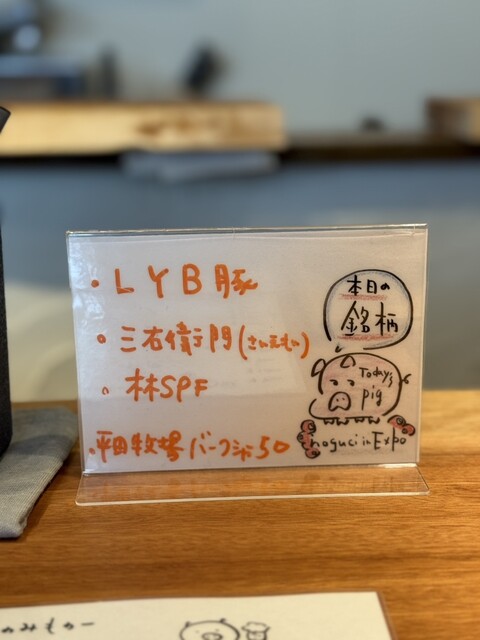 ・LYB豚
・三右衛門(さんえもん)
・林SPF
・平田牧場バークシャー50
本日の
銘柄
Today's
pig
noguci in Expo
のみものー